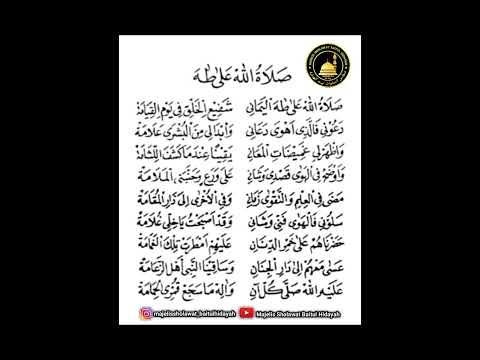 صَلَاةُ اللهْ عَلَىٰ طٰهَ
صَلَاةُ اللهْ عَلَىٰ طٰهَ الْيَمَانِي شَفِيْعِ الْخَلْقِ فِي يَوْمِ الْقِيَامَةْ
دَعُوْنِي فَالَّذِي أَهْوَى دَعَانِي وَأَبْدَا لِي مِنَ الْبُشْرَى عَلَامَةْ
وَاظْهَرْ لِي غَمِيْضَاتِ الْمَعَانِي يَقِيْنًا عِنْدَمَا كَشَفَ اللِّثَامَةْ
وَأَوْضَحْ فِي الْهَوَى قَصْدِي وَشَانِي عَلَى وَرَعٍ وَجَنَّبَنِي الْمَلَامَةْ
مَضَى فِي الْعِلْمِ وَالتَّقْوَى زَمَانِي وَفِي الْأُخْرَى إِلَى دَارِ الْمُقَامَةْ
سَلُوْنِي فَالْهَوَى فَنِّي وَشَانِي وَقَدْ أَصْبَحْتُ يَاخِلِّي غُلَامَةْ
حَضَرْنَاهُمْ عَلَى خَمْرِ الدِّنَانِ عَلَيْهِمْ أَمْطَرَتْ تِلْكَ الْغَمَامَةْ
عَسَى مَعَهُمْ إِلَى دَارِ الْجِنَانِ وَسَاقِيْنَا النَّبِي أَهْلُ الزَّعَامَةْ
عَلَيْهِ اللهْ صَلَّى كُلَّ آنٍ وَآلِهْ مَا سَجَعْ قُمْرِي الْحَمَامَةْ
majelissholawat_baitulhidayah Majelis Sholawat Baitul Hidayah